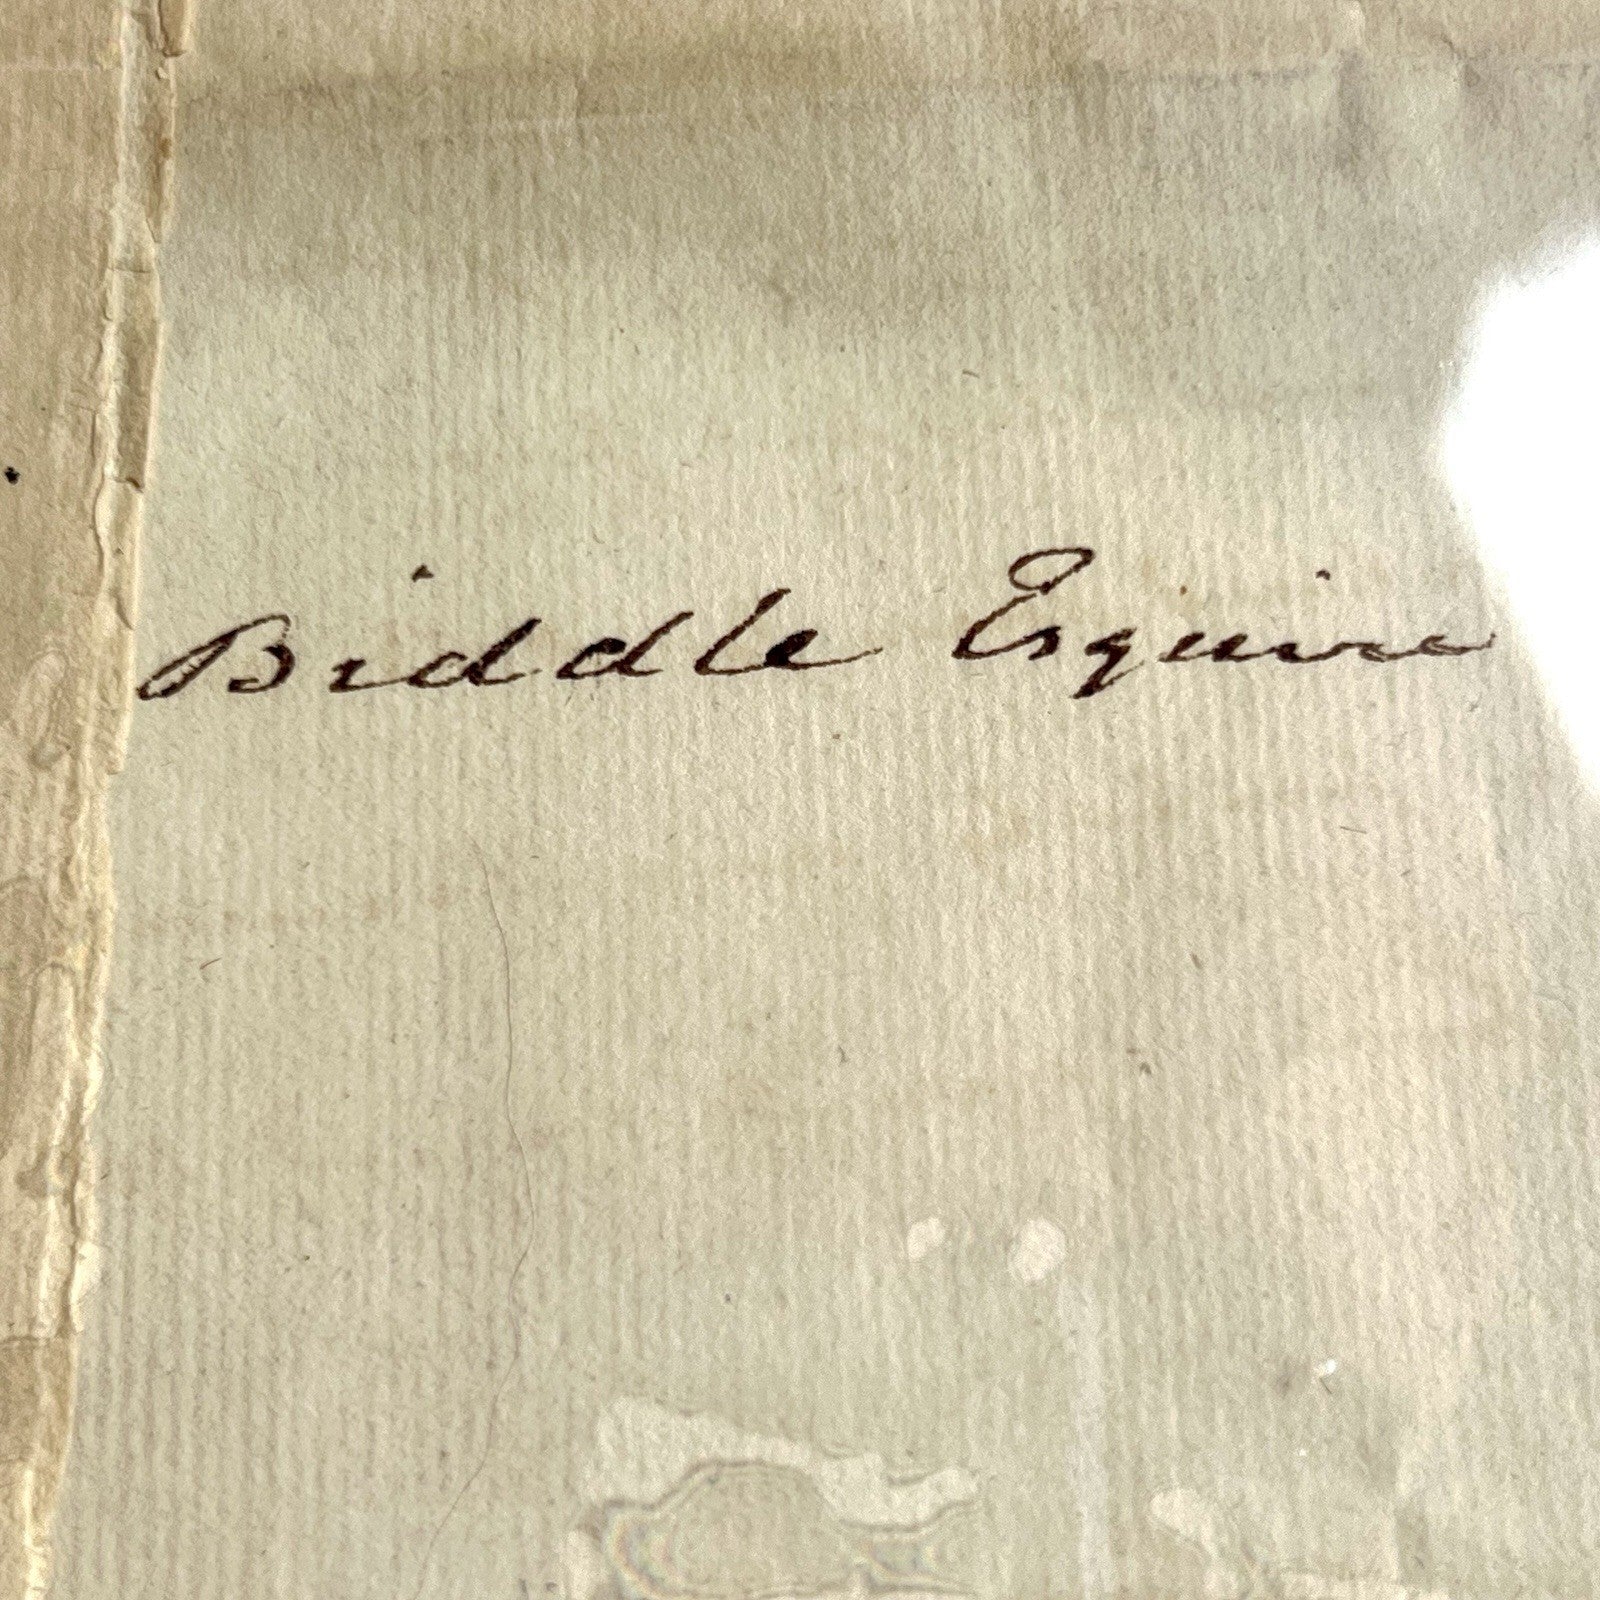 Biddle Esquire